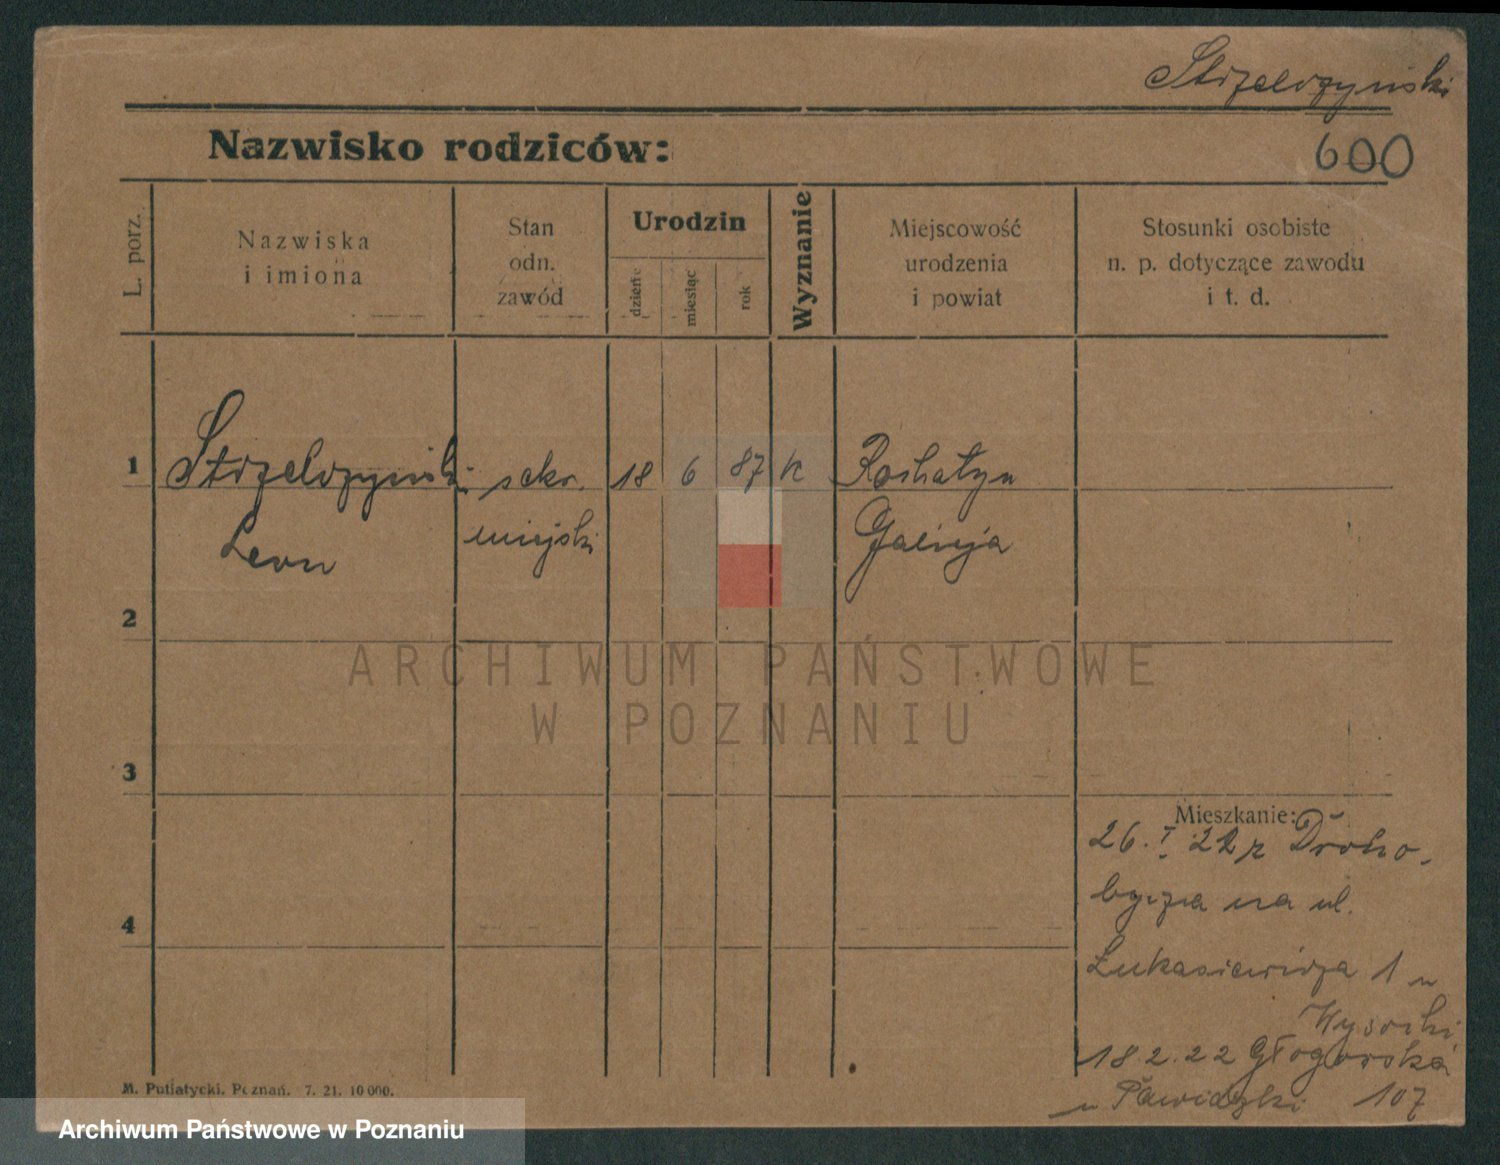 Strzelczyński
Nazwisko rodziców:
600
L. porz.
Nazwiska
i imiona
Stan
odn.
zawód
Urodzin
dzień
miesiąc
rok
Wyznanie
Miejscowość
urodzenia
i powiat
Stosunki osobiste
n. p. dotyczące zawodu
i t. d.
1
Strzelczyński
sekr.
18
6
87
k
Rohatyn
Leon
miejski
Galicja
2
ARCHIWUM PAŃSTWOWE
W POZNANIU
3
Mieszkanie:
26. I. 22 z Droho-
bycza na ul.
4
Łukasiewicza 1 u
Wysocki
18 2. 22 Głogowska
u 107
M. Putiatycki. Poznań. 7. 21. 10 000.
Archiwum Państwowe w Poznaniu